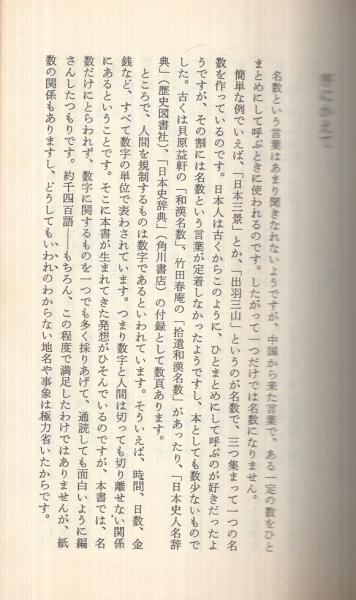 序にかえて
名数という言葉はあまり聞きなれないようですが、中国から来た言葉で、ある一定の数をひと
まとめにして呼ぶときに使われるのです。したがって一つだけでは名数になりません。
簡単な例でいえば、「日本三景」とか、「出羽三山」というのが名数で、三つ集まって一つの名
数を作っているのです。日本人は古くからこのように、ひとまとめにして呼ぶのが好きだったよ
うですが、その割には名数という言葉が定着しなかったようですし、本としても数少ないもので
した。古くは貝原益軒の「和漢名数」、竹田春庵の「拾遺和漢名数」があったり、「日本史人名辞
典」（歴史図書社）、「日本史辞典」（角川書店）の付録として数頁あります。
ところで、人間を規制するものは数字であるといわれています。そういえば、時間、日数、金
銭など、すべて数字の単位で表わされています。つまり数字と人間は切っても切り離せない関係
にあるということです。そこに本書が生まれてきた発想がひそんでいるのですが、本書では、名
数だけにとらわれず、数字に関するものを一つでも多く採りあげて、通読しても面白いように編
さんしたつもりです。約千四百語――もちろん、この程度で満足したわけではありませんが、紙
数の関係もありますし、どうしてもいわれのわからない地名や事象は極力省いたからです。